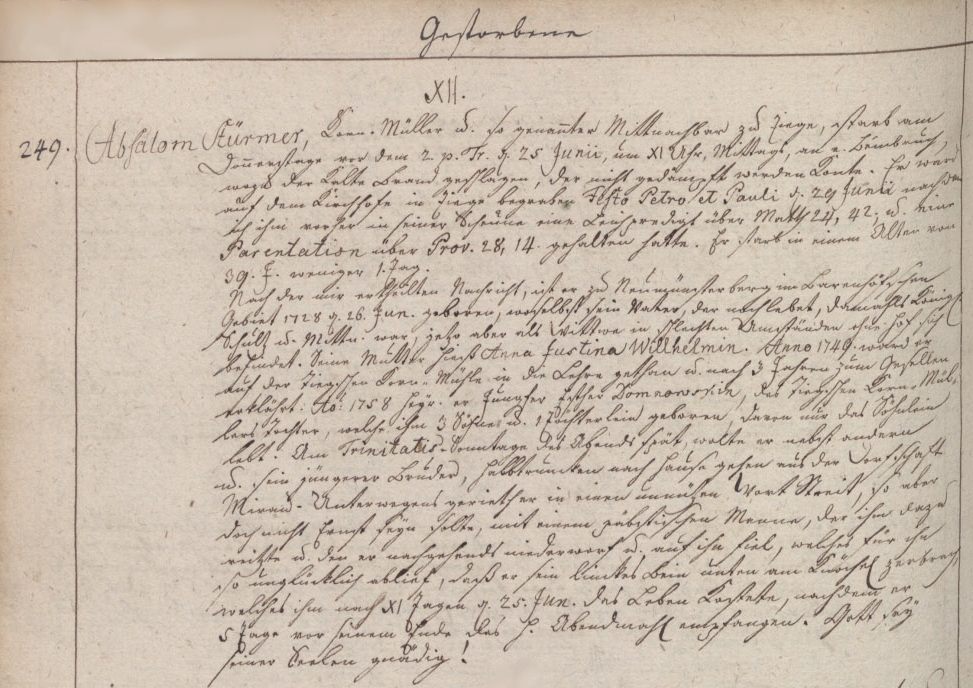 Gestorbene
XII.
249. Absalom Stürmer, Korn-Müller u. so genannter Mittnachbar zu Ziege, starb am
Donnerstage vor dem 2. p. Tr. d. 25 Junii, um XI Uhr, Mittags, an e. Beinbruch,
wozu der Kalte Brand geschlagen, der nicht gedämpft werden konte. Er ward
auf dem Kirchhofe in Ziege begraben Festo Petro et Pauli d. 29 Junii nachdem
ich ihm vorher in seiner Scheune eine Leichpredigt über Matth 24, 42. u. eine
Parentation über Prov. 28, 14. gehalten hatte. Er starb in einem Alter von
39. J. weniger 1. Tag.
Nach der mir ertheilten Nachricht, ist er zu Neumünsterberg im Bärenhöfschen
Gebiet 1728 d. 26. Jun. geboren, woselbst sein Vater, der noch lebet, damahls
Schulz u. Mittn. war, jetzo aber als Wittwer in schlechten Umständen ohne Hof sich
befindet. Seine Mutter hiess Anna Justina Willhelmin. Anno 1749. ward er
auf der Ziegschen Korn-Mühle in die Lehre gethan u. nach 3 Jahren zum Gesellen
erklährt. Ao: 1758 heyr. er Jungfer Esther Domnowskin, des Ziegschen Korn-Mül-
lers Tochter, welche ihm 3 Söhne u. 1 Töchterlein geboren, davon nur das Söhnlein
lebt. Am Trinitatis-Sonntage des Abends spät, wolte er nebst andern
u. sein jüngerer Bruder, halbtruncken nach Hause gehen aus der Dorfschaft
Mirau. Unterwegens gerieth er in einen unnützen Wort Streit, so aber
doch nicht Ernst seyn solte, mit einem päbstischen Manne, der ihn dazu
reitzte u. den er nachgehends niederworf u. auf ihn fiel, welches für ihn
so unglücklich ablief, daß er sein linckes Bein unten am Knöchel zerbrach,
welches ihm nach XI Tagen d. 25. Jun. das Leben kostete, nachdem er
5 Tage vor seinem Ende das H. Abendmahl empfangen. Gott sey
seiner Seelen gnädig!